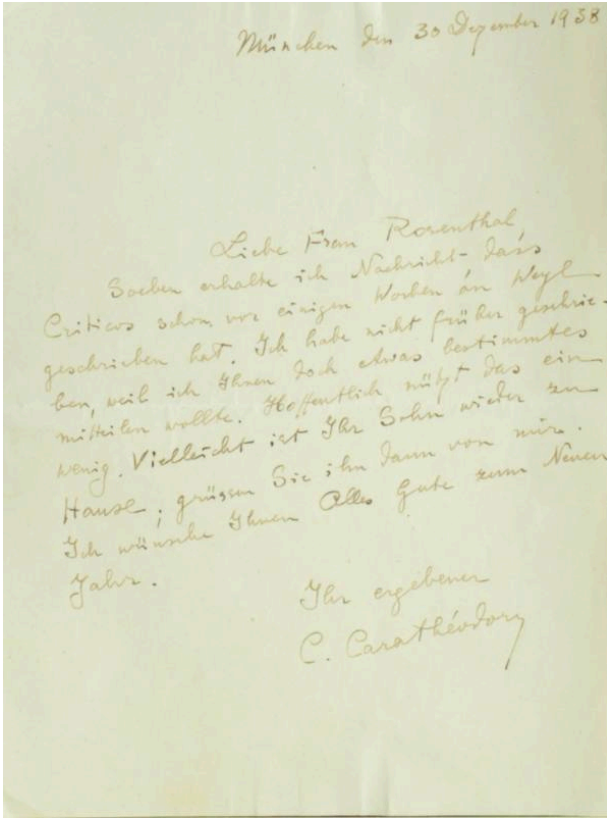 München den 30 Dezember 1938
Liebe Frau Rosenthal
Soeben erhalte ich Nachricht dass
Criticos schon vor einigen Wochen an Weyl
geschrieben hat. Ich habe nicht früher geschrie-
ben, weil ich Ihnen doch etwas bestimmtes
mitteilen wollte. Hoffentlich nützt das ein
wenig. Vielleicht ist Ihr Sohn wieder zu
Hause; grüssen Sie ihn dann von mir.
Ich wünsche Ihnen Alles Gute zum Neuen
Jahr.
Ihr ergebener
C. Carathéodory